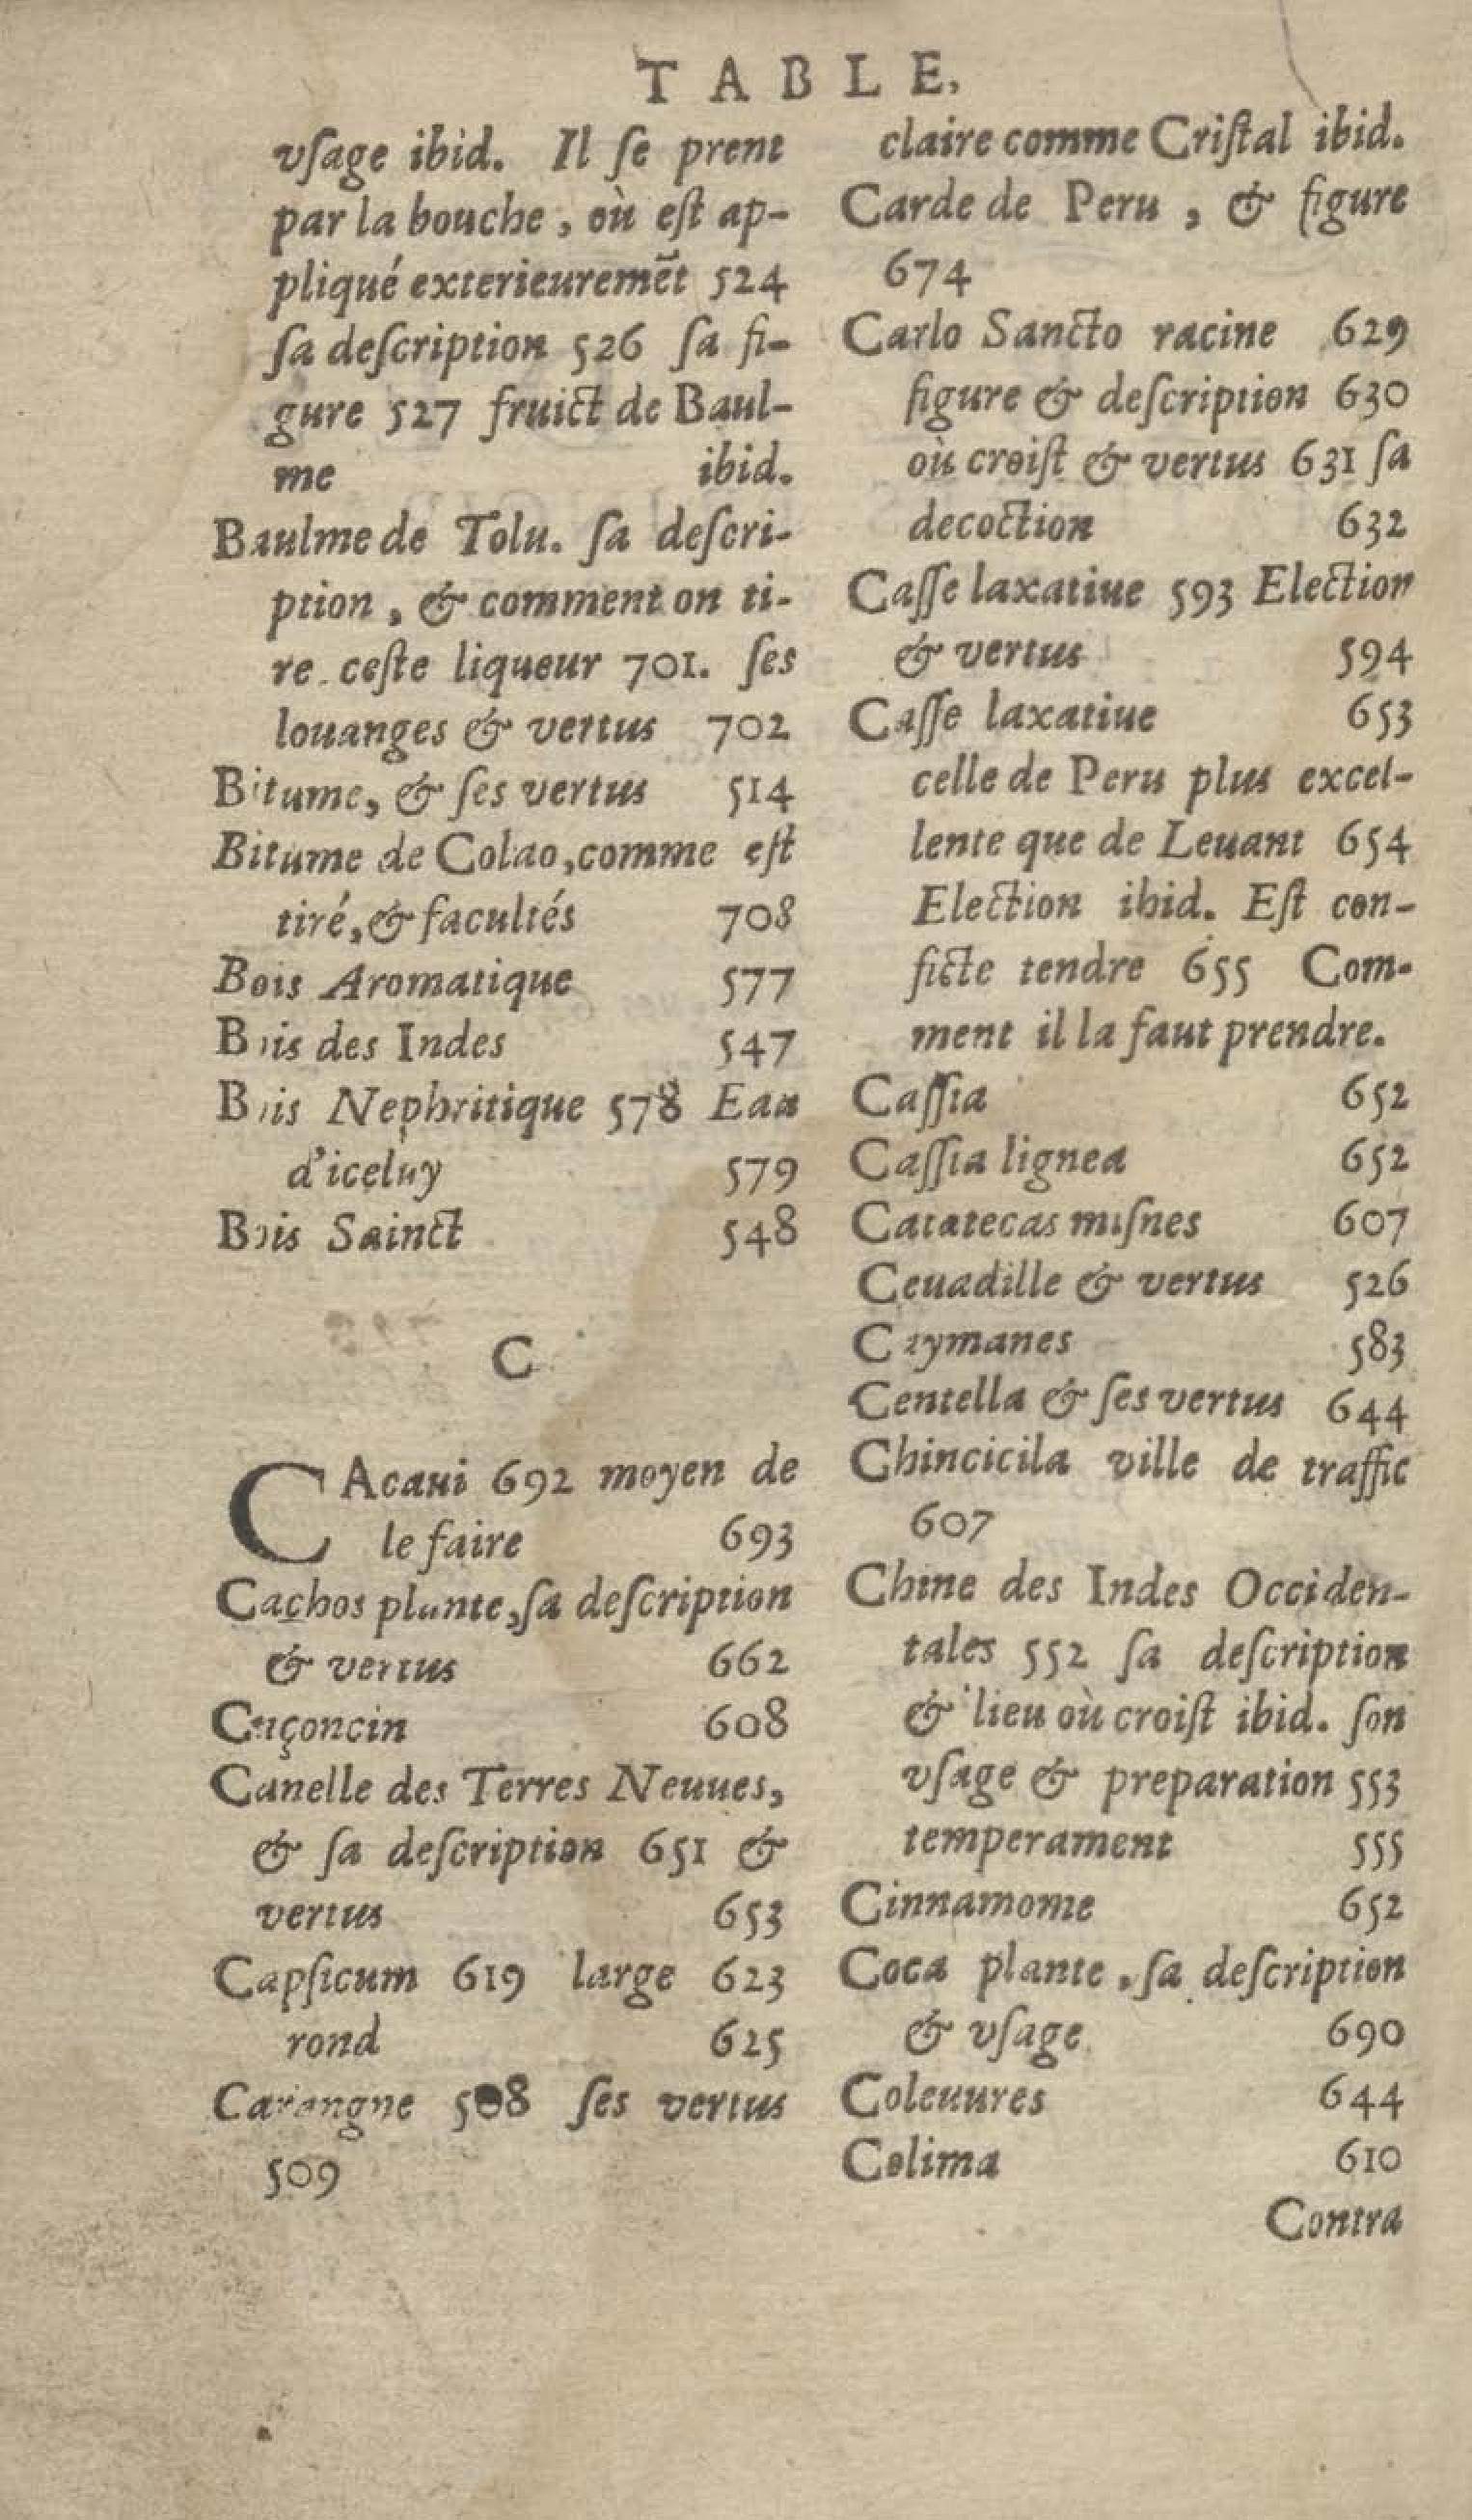 TABLE,
vſage ibid. Il ſe prent
par la bouche, où eſt ap-
pliqué exterieuremēt 524
ſa deſcription 526 ſa fi-
gure 527 fruict de Baul-
me ibid.
Baulme de Tolu. ſa deſcri-
ption, & comment on ti-
re ceſte liqueur 701. ſes
louanges & vertus 702
Bitume, & ſes vertus 514
Bitume de Colao, comme eſt
tiré, & facultés 708
Bois Aromatique 577
Bois des Indes 547
Bois Nephritique 578 Eau
d'iceluy 579
Bois Sainct 548
C
CAcaui 692 moyen de
le faire 693
Cachos plante, ſa deſcription
& vertus 662
Caçoncin 608
Canelle des Terres Neuues,
& ſa deſcription 651 &
vertus 653
Capſicum 619 large 623
rond 625
Carangne 508 ſes vertus
509
claire comme Criſtal ibid.
Carde de Peru, & figure
674
Carlo Sancto racine 629
figure & deſcription 630
où croiſt & vertus 631 ſa
decoction 632
Caſſe laxatiue 593 Election
& vertus 594
Caſſe laxatiue 653
celle de Peru plus excel-
lente que de Leuant 654
Election ibid. Eſt con-
ficte tendre 655 Com-
ment il la faut prendre.
Caſſia 652
Caſſia lignea 652
Catatecas miſnes 607
Ceuadille & vertus 526
Caymanes 583
Centella & ſes vertus 644
Chincicila ville de traffic
607
Chine des Indes Occiden-
tales 552 ſa deſcription
& lieu où croiſt ibid. ſon
vſage & preparation 553
temperament 555
Cinnamome 652
Coca plante, ſa deſcription
& vſage 690
Coleuures 644
Colima 610
Contra